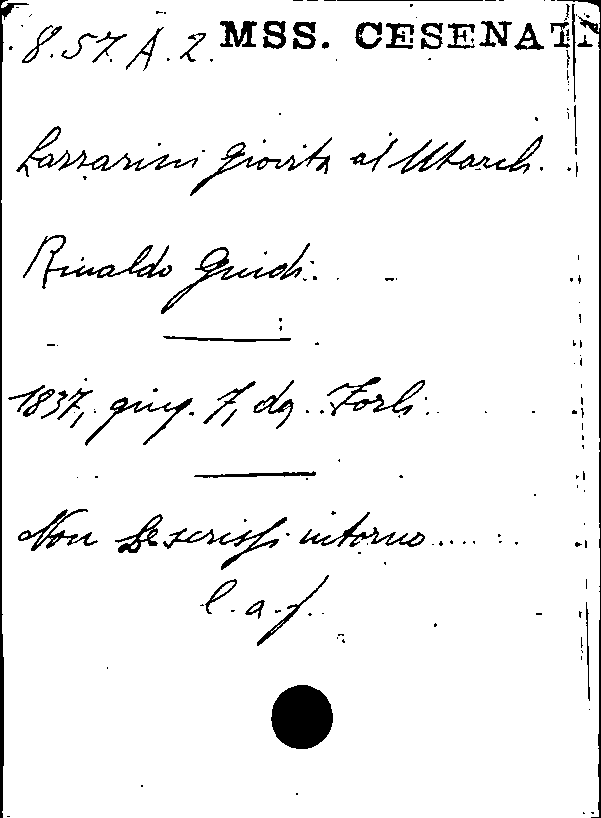 8.57.A.2. MSS. CESENATI
Lazzarini Giovita al March.
Rinaldo Guidi.
1837, giug. 7, da Forlì
Non Le scrissi intorno.....
l. a. f.